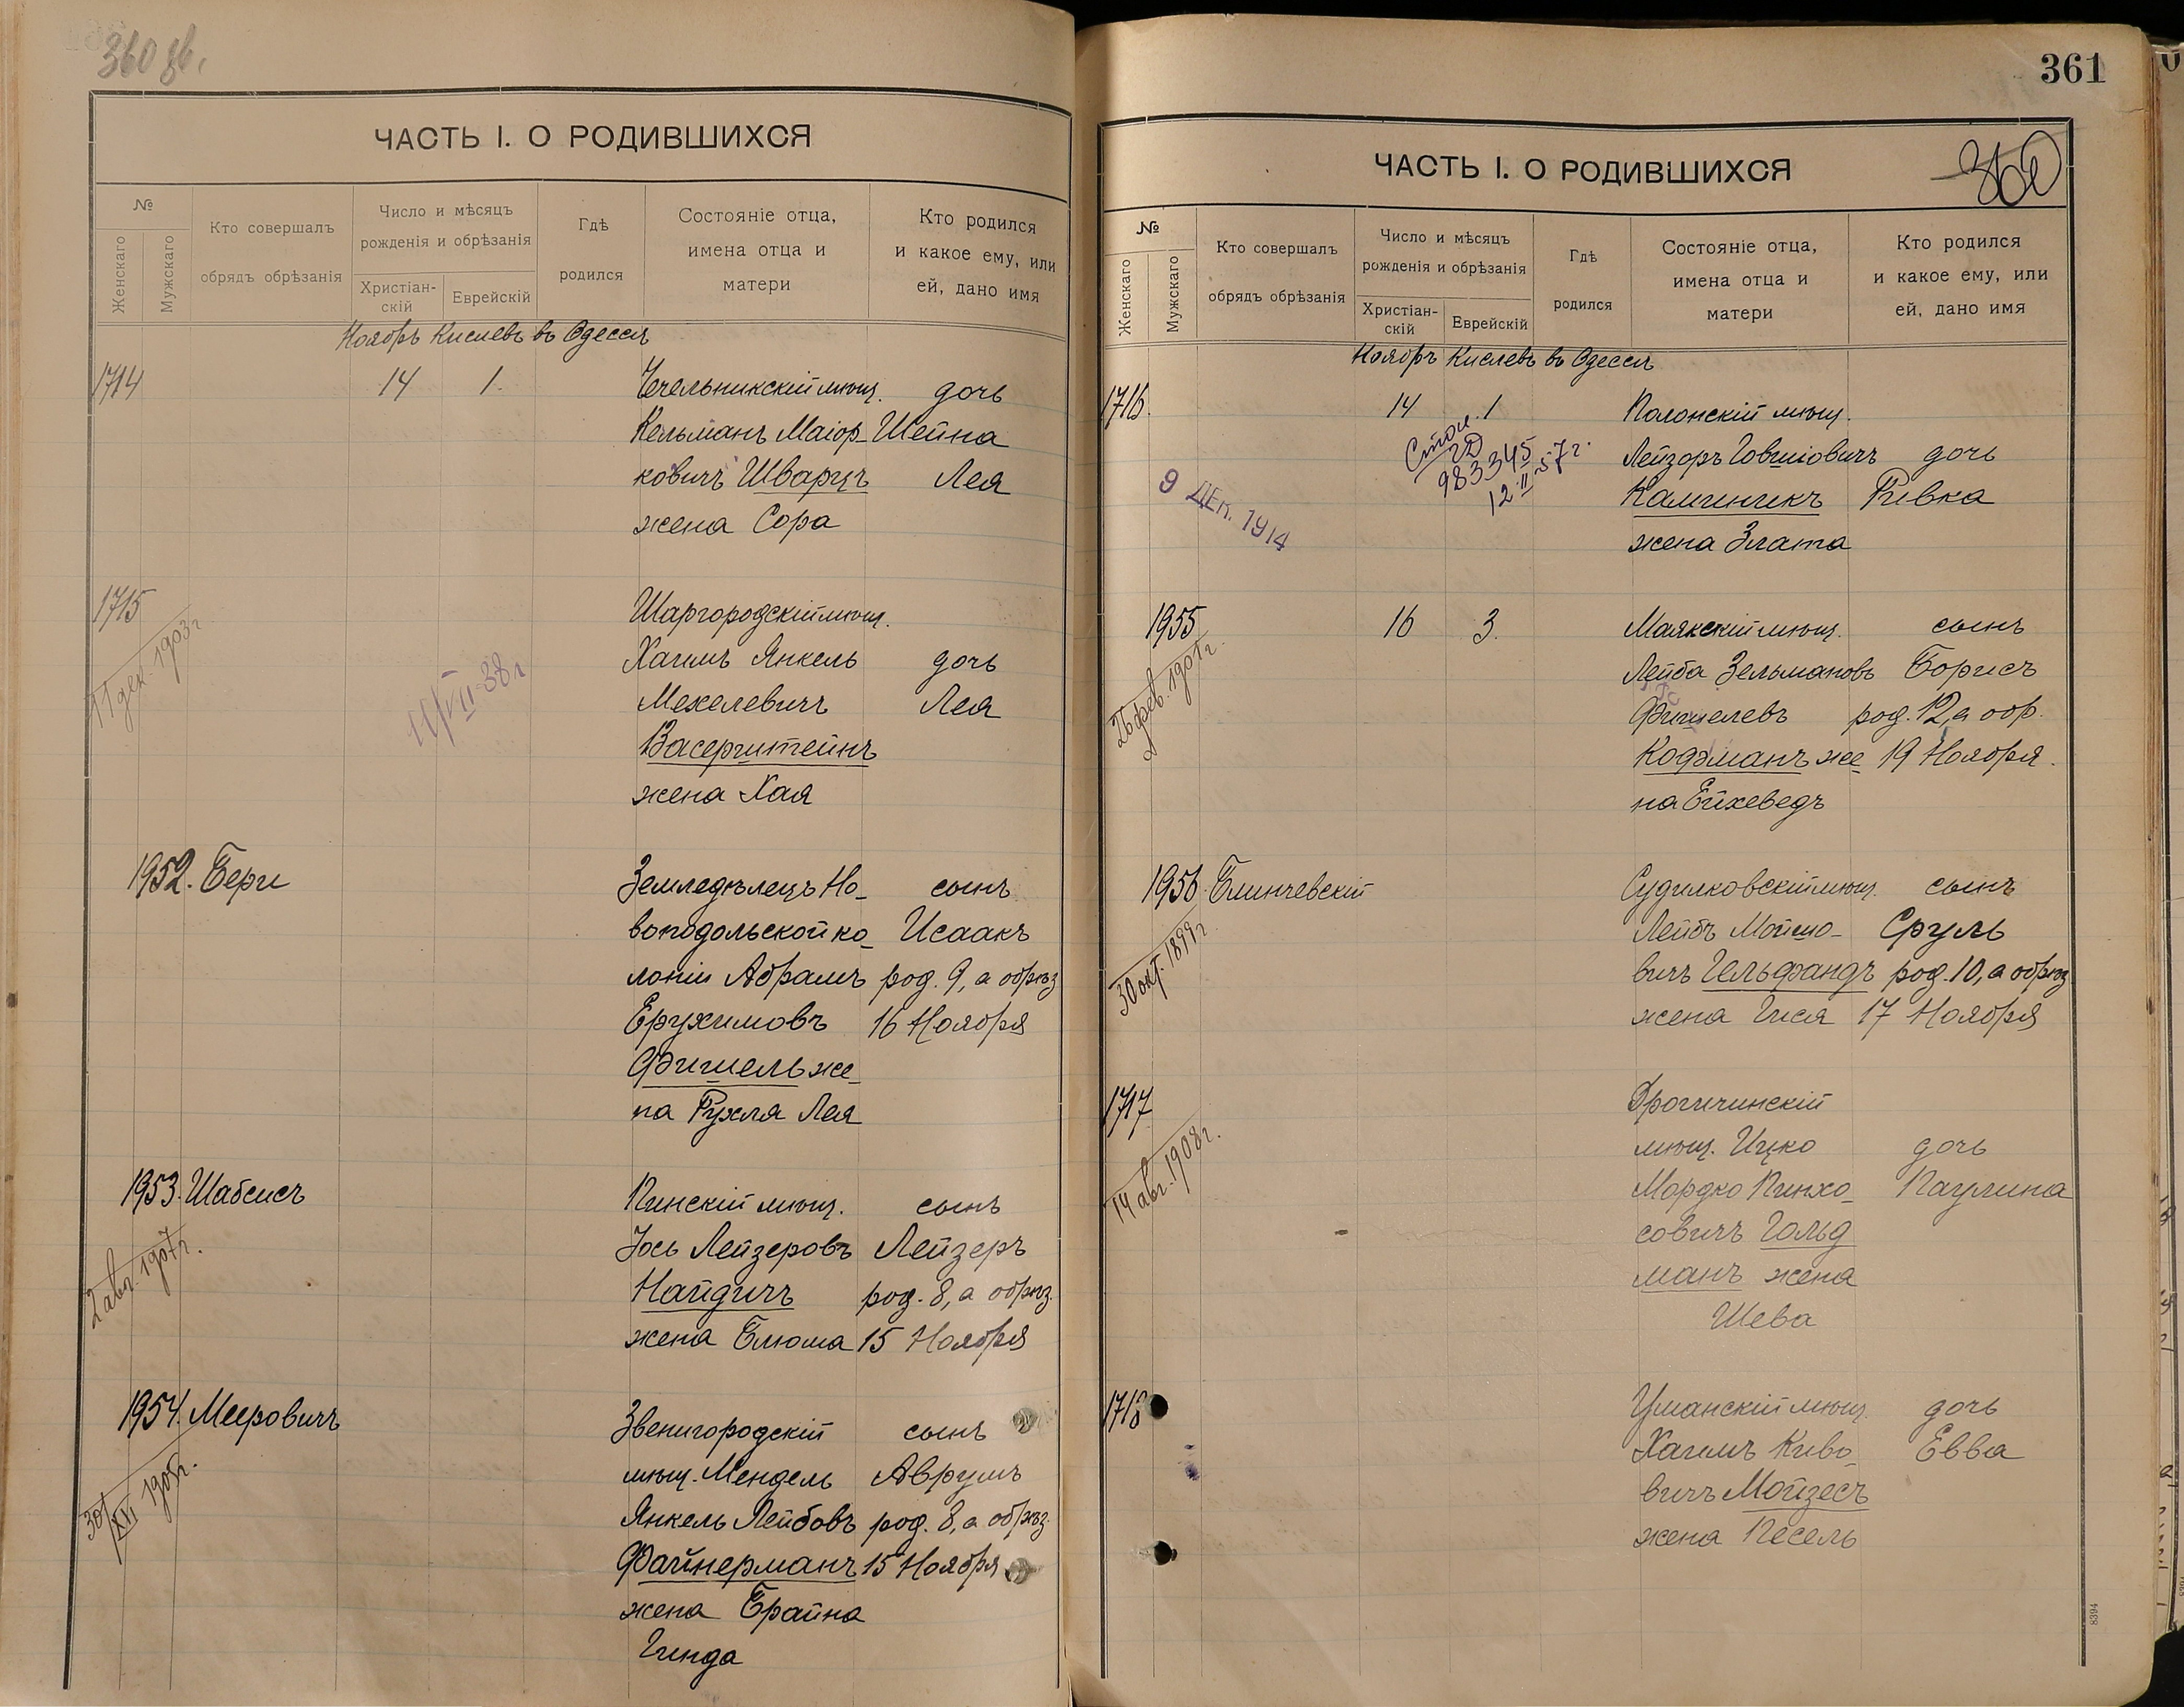 360 об.
ЧАСТЬ I. О РОДИВШИХСЯ
№
Женскаго
Мужскаго
Кто совершалъ
обрядъ обрѣзанія
Число и мѣсяцъ
рожденія и обрѣзанія
Христіан-
скій
Еврейскій
Гдѣ
родился
Состояніе отца,
имена отца и
матери
Кто родился
и какое ему, или
ей, дано имя
Ноябрь Кислевъ въ Одессѣ
1714 14 1. Чечельникскій мѣщ. дочь
Кельманъ Маіор- Шейна
ковичъ Шварцъ Лея
жена Сора
1715 Шаргородскій мѣщ.
11 дек. 1903 г.
11/VII-38 г
Хаимъ Янкель дочь
Мехелевичъ Лея
Васерштейнъ
жена Хая
1952. Бери Земледѣлецъ Но- сынъ
воподольской ко- Исаакъ
лоніи Абрамъ род. 9, а обрѣз
Ерухимовъ 16 Ноября
Фишель же-
на Рухля Лея
1953. Шабсисъ Пинскій мѣщ. сынъ
2 авг. 1907 г.
Іось Лейзеровъ Лейзеръ
Найдичъ род. 8, а обрѣз.
жена Блюма 15 Ноября
1954. Мееровичъ Звенигородскій сынъ
30/XVI 1905 г.
мѣщ. Мендель Аврумъ
Янкель Лейбовъ род. 8, а обрѣз.
Файнерманъ 15 Ноября
жена Брайна
Гинда
361
ЧАСТЬ I. О РОДИВШИХСЯ
360
№
Женскаго
Мужскаго
Кто совершалъ
обрядъ обрѣзанія
Число и мѣсяцъ
рожденія и обрѣзанія
Христіан-
скій
Еврейскій
Гдѣ
родился
Состояніе отца,
имена отца и
матери
Кто родился
и какое ему, или
ей, дано имя
Ноябрь Кислевъ въ Одессѣ
1716. 14 1 Полонскій мѣщ.
983345
12.II.57 г.
9 ДЕК. 1914
Лейзоръ Говшіовичъ дочь
Каминикъ Ривка
жена Злата
1955 16 3. Маякскій мѣщ. сынъ
26 фев. 1901 г.
Лейба Зельмановъ Борисъ
Фишелевъ род. 12, а обр.
Кофманъ же- 19 Ноября.
на Ейхеведъ
1956. Блинчевскій Судилковскій мѣщ. сынъ
30 окт. 1899 г
Лейбъ Мошко- Сруль
вичъ Гельфандъ род. 10, а обрѣз
жена Гися 17 Ноября
1717 Дрогичинскій
14 авг. 1908 г.
мѣщ. Ицко дочь
Мордко Пинхо- Паулина
совичъ Гольд
манъ жена
Шева
1718 Уманскій мѣщ. дочь
Хаимъ Киво- Евва
вичъ Мойзесъ
жена Песель
8394